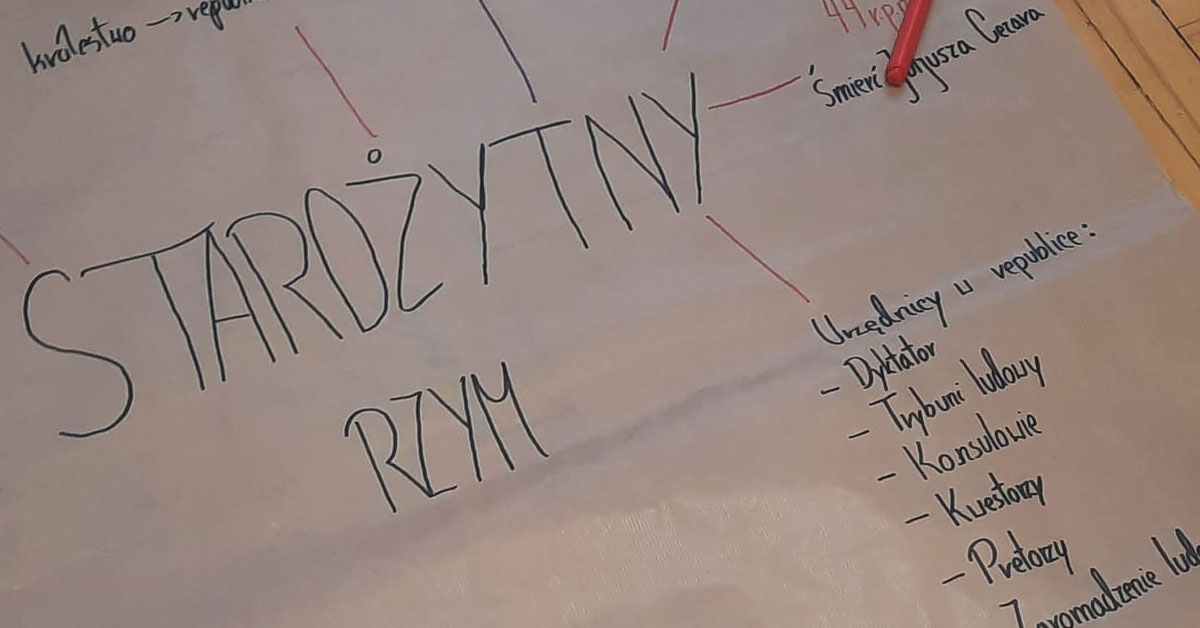 królestwo →
44 r.p.n
Śmierć Juliusza Cezara
STAROŻYTNY
RZYM
Urzędnicy w republice:
- Dyktator
- Trybuni ludowy
- Konsulowie
- Kwestorzy
- Pretorzy